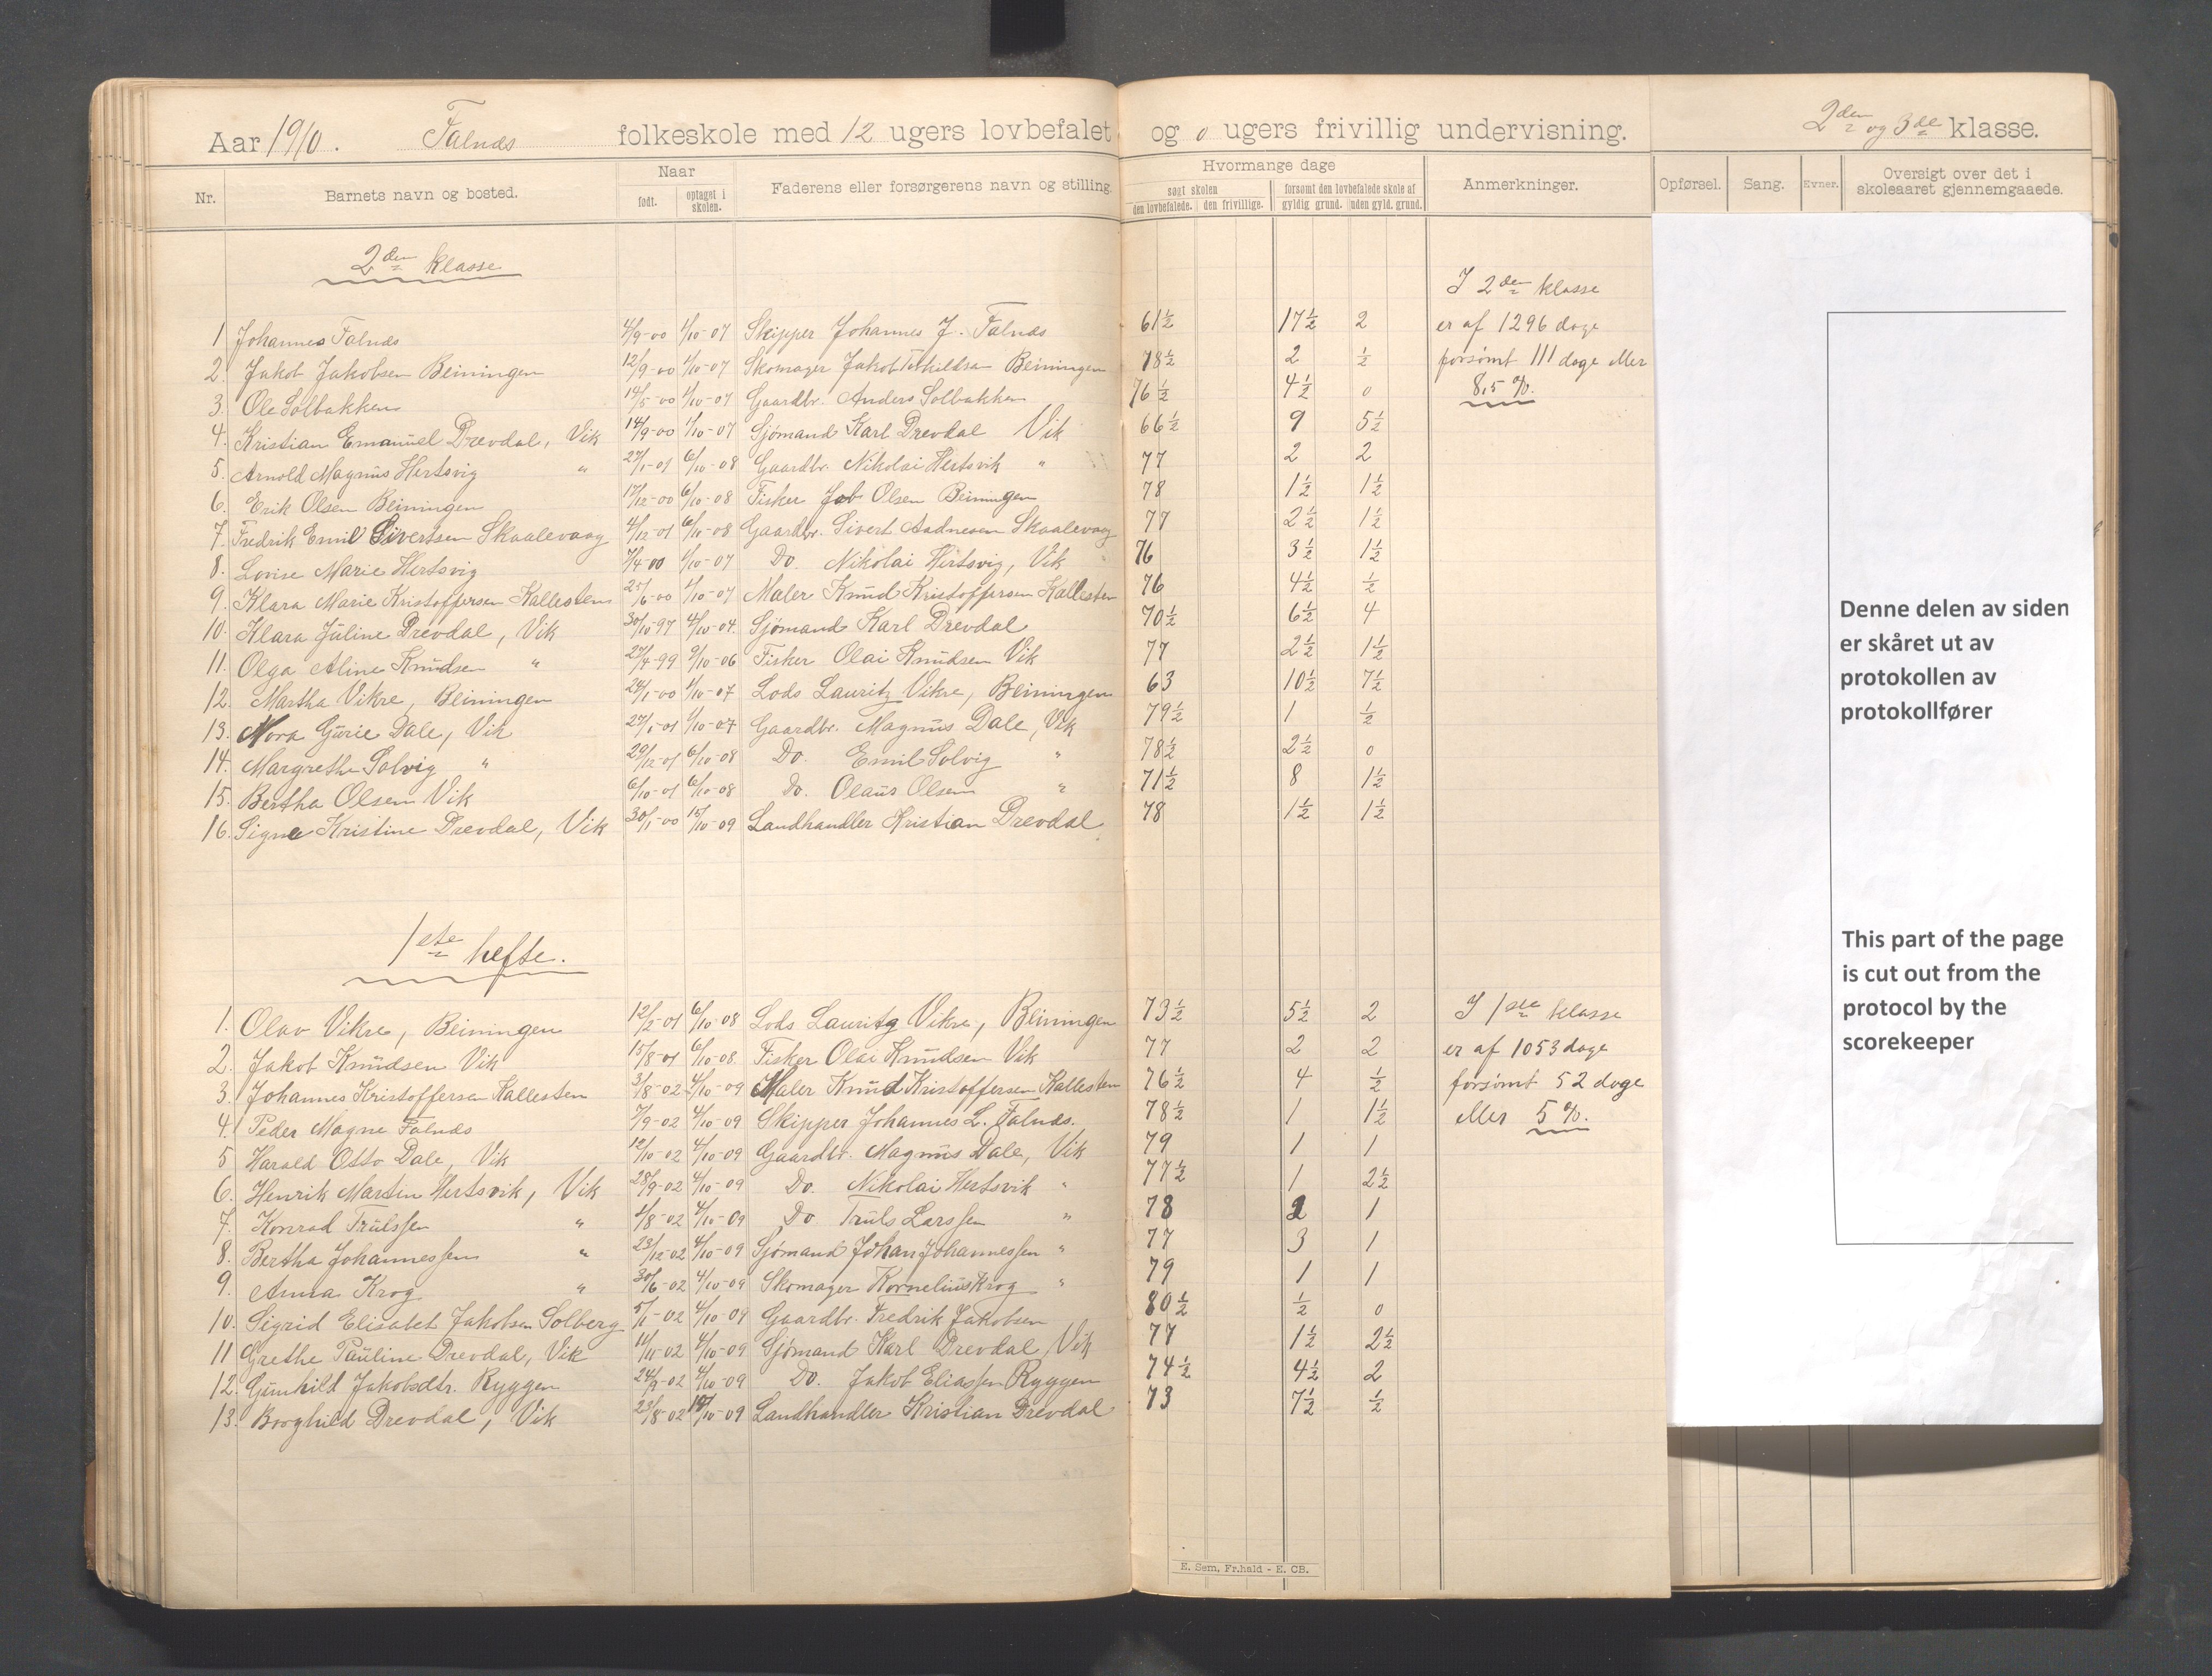 Aar 1910. Falnæs folkeskole med 12 ugers lovbefalet og 0 ugers frivillig undervisning. 2den og 3de klasse.
Nr. Barnets navn og bosted. Naar født. optaget i skolen. Faderens eller forsørgerens navn og stilling. Hvormange dage søgt skolen den lovbefalede. den frivillige. forsømt den lovbefalede skole af gyldig grund. uden gyld. grund. Anmerkninger. Opførsel. Sang. Evner. Oversigt over det i skoleaaret gjennemgaaede.
2den klasse
I 2den klasse
1 Johannes Falnæs 4/9-00 1/10-07 Skipper Johannes J. Falnæs 61½ 17½ 2 er af 1296 dage
2. Jakob Jakobsen Beiningen 12/9-00 1/10-07 Skomager Jakob Beiningen 78½ 2 ½ forsømt 111 dage eller
3. Ole Solbakken 14/5-00 1/10-07 Gaardbr. Anders Solbakken 76½ 4½ 0 8,5 %.
4. Kristian Emanuel Drevdal, Vik 14/9-00 1/10-07 Sjømand Karl Drevdal Vik 66½ 9 5½
5. Arnold Magnus Hertsvig " 27/1-01 6/10-08 Gaardbr. Nikolai Hertsvik " 77 2 2
6. Erik Olsen Beiningen 17/12-00 6/10-08 Fisker Job Olsen Beiningen 78 1½ 1½
7. Fredrik Emil Sivertsen Skaalevaag 4/12-01 6/10-08 Gaardbr. Sivert Aadnesen Skaalevaag 77 2½ 1½
8. Lovise Marie Hertsvig 7/4-00 1/10-07 Do. Nikolai Hertsvig, Vik 76 3½ 1½
9. Klara Marie Kristoffersen Kallesten 25/6-00 1/10-07 Maler Knud Kristoffersen Kallesten 76 4½ ½
10. Klara Juline Drevdal, Vik 30/10-97 4/10-04. Sjømand Karl Drevdal 70½ 6½ 4
11. Olga Aline Knudsen " 27/4-99 9/10-06 Fisker Olai Knudsen Vik 77 2½ 1½
12. Martha Vikre, Beiningen 24/1-00 1/10-07 Lods Lauritz Vikre, Beiningen 63 10½ 7½
13. Nora Gurie Dale, Vik 27/1-01 1/10-07 Gaardbr. Magnus Dale, Vik 79½ 1 ½
14. Margrethe Solvig " 29/12-01 6/10-08 Do. Emil Solvig " 78½ 2½ 0
15. Bertha Olsen Vik 6/10-01 6/10-08 Do. Olaus Olsen " 71½ 8 1½
16. Signe Kristine Drevdal, Vik 30/1-00 15/10-09 Landhandler Kristian Drevdal 78 1½ 1½
1ste hefte.
1. Olav Vikre, Beiningen 12/2-01 6/10-08 Lods Lauritz Vikre, Beiningen 73½ 5½ 2 I 1ste klasse
2. Jakob Knudsen Vik 15/8-01 6/10-08. Fisker Olai Knudsen Vik 77 2 2 er af 1053 dage
3. Johannes Kristoffersen Kallesten 3/8-02 4/10-09 Maler Knud Kristoffersen Kallesten 76½ 4 ½ forsømt 52 dage
4. Peder Magne Falnæs 7/9-02 4/10-09 Skipper Johannes L. Falnæs. 78½ 1 1½ eller 5 %.
5 Harald Otto Dale, Vik 12/10-02 4/10-09 Gaardbr. Magnus Dale, Vik 79 1 1
6. Henrik Martin Hertsvik, Vik 28/9-02 4/10-09 Do. Nikolai Hertsvik " 77½ 1 2½
7. Konrad Trulssen " 4/8-02 4/10-09 Do Truls Larssen " 78 2 1
8. Bertha Johannessen " 23/12-02 4/10-09 Sjømand Johan Johannessen " 77 3 1
9. Anna Krog " 30/6-02 4/10-09 Skomager Kornelius Krog " 79 1 1
10. Sigrid Elisabet Jakobsen Solberg 5/1-02 4/10-09 Gaardbr. Fredrik Jakobsen 80½ ½ 0
11 Grethe Pauline Drevdal, Vik 11/10-02 4/10-09 Sjømand Karl Drevdal Vik 77 1½ 2½
12. Gunhild Jakobsdtr. Ryggen 24/9-02 4/10-09 Do. Jakob Eliassen Ryggen 74½ 4½ 2
13. Borghild Drevdal, Vik 23/8-02 18/10-09 Landhandler Kristian Drevdal 73 7½ ½
E. Sem, Fr.hald - E. CB.
Denne delen av siden
er skåret ut av
protokollen av
protokollfører
This part of the page
is cut out from the
protocol by the
scorekeeper